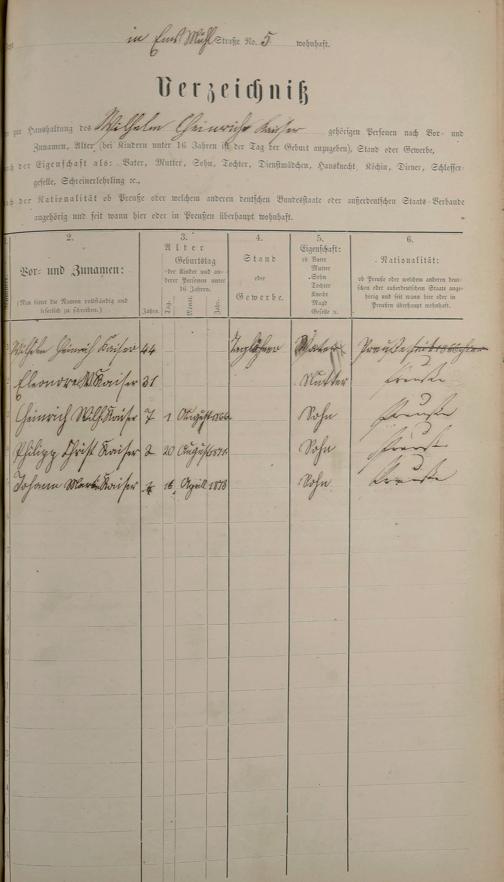 in Ems Mühl Straße No. 5 wohnhaft.
Verzeichniß
zur Haushaltung des Wilhelm Heinrich Kaiser gehörigen Personen nach Vor- und
Zunamen, Alter (bei Kindern unter 16 Jahren ist der Tag der Geburt anzugeben), Stand oder Gewerbe,
nach der Eigenschaft als: Vater, Mutter, Sohn, Tochter, Dienstmädchen, Hausknecht, Köchin, Diener, Schlosser-
geselle, Schreinerlehrling ec.,
nach der Nationalität ob Preuße oder welchem anderen deutschen Bundesstaate oder außerdeutschen Staats-Verbande
angehörig und seit wann hier oder in Preußen überhaupt wohnhaft.
2. 3. 4. 5. 6.
Vor- und Zunamen:
(Man bittet die Namen vollständig und
leserlich zu schreiben.)
Alter
Geburtstag
der Kinder und an-
derer Personen unter
16 Jahren.
Jahre. Tag. Monat. Jahr.
Stand
oder
Gewerbe.
Eigenschaft:
ob Vater
Mutter
Sohn
Tochter
Knecht
Magd
Geselle ec.
Nationalität:
ob Preuße oder welchem anderen deut-
schen oder außerdeutschen Staate ange-
hörig und seit wann hier oder in
Preußen überhaupt wohnhaft.
Wilhelm Heinrich Kaiser 44 Taglöhner Vater Preuße
Eleonore Kaiser 31 Mutter Preuße
Heinrich Wilh. Kaiser 7 1 August Sohn Preuße
Philipp Christ Kaiser 2 20 August 1871 Sohn Preuße
Johann Kaiser 16 April 1873 Sohn Preuße